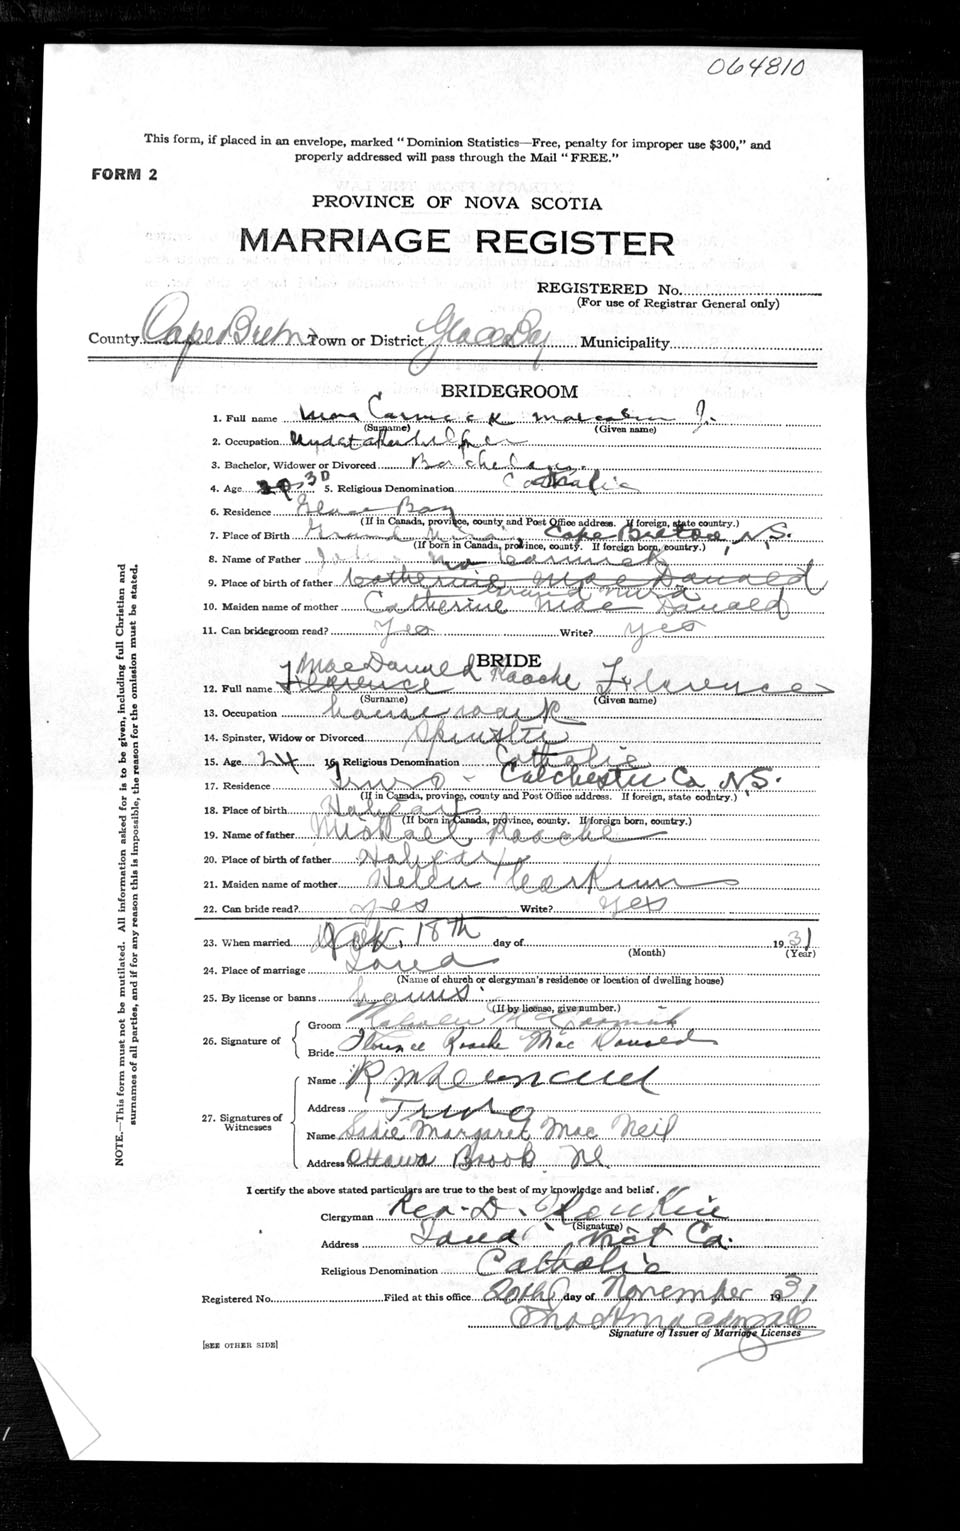 064810
This form, if placed in an envelope, marked "Dominion Statistics—Free, penalty for improper use $300," and
properly addressed will pass through the Mail "FREE."
FORM 2
PROVINCE OF NOVA SCOTIA
MARRIAGE REGISTER
REGISTERED No.
(For use of Registrar General only)
County Cape Breton Town or District Glace Bay Municipality
BRIDEGROOM
1. Full name Mac Carmack Malcolm J.
(Surname) (Given name)
2. Occupation
3. Bachelor, Widower or Divorced Bachelor
4. Age 30 5. Religious Denomination Catholic
6. Residence Glace Bay
(If in Canada, province, county and Post Office address. If foreign, state country.)
7. Place of Birth Grand Mira Cape Breton, N.S.
(If born in Canada, province, county. If foreign born, country.)
8. Name of Father John Mc Cormick
9. Place of birth of father Catherine Mac Donald
Grand Mira
10. Maiden name of mother Catherine Mac Donald
11. Can bridegroom read? Yes Write? yes
BRIDE
Mac Donald Roache
12. Full name Florence Florence
(Surname) (Given name)
13. Occupation housework
14. Spinster, Widow or Divorced Spinster
15. Age 24 16. Religious Denomination Catholic
17. Residence Truro - Colchester Co, N.S.
(If in Canada, province, county and Post Office address. If foreign, state country.)
18. Place of birth Halifax
(If born in Canada, province, county. If foreign born, country.)
19. Name of father Michael Roache
20. Place of birth of father Halifax
21. Maiden name of mother Helen
22. Can bride read? yes Write? yes
23. When married 18th day of 1931
(Month) (Year)
24. Place of marriage Iona
(Name of church or clergyman's residence or location of dwelling house)
25. By license or banns banns
(If by license, give number.)
26. Signature of
Groom Malcolm McCormick
Bride Florence Roache Mac Donald
27. Signatures of Witnesses
Name
Address Truro
Name Sadie Margaret Mac Neil
Address Ottawa Brook
I certify the above stated particulars are true to the best of my knowledge and belief.
Clergyman Rev. D. Rankin
(Signature)
Address Iona, Vict Co.
Religious Denomination Catholic
Registered No. Filed at this office 20th day of November 1931
Signature of Issuer of Marriage Licenses
[SEE OTHER SIDE]
NOTE.—This form must not be mutilated. All information asked for is to be given, including full Christian and
surnames of all parties, and if for any reason this is impossible, the reason for the omission must be stated.